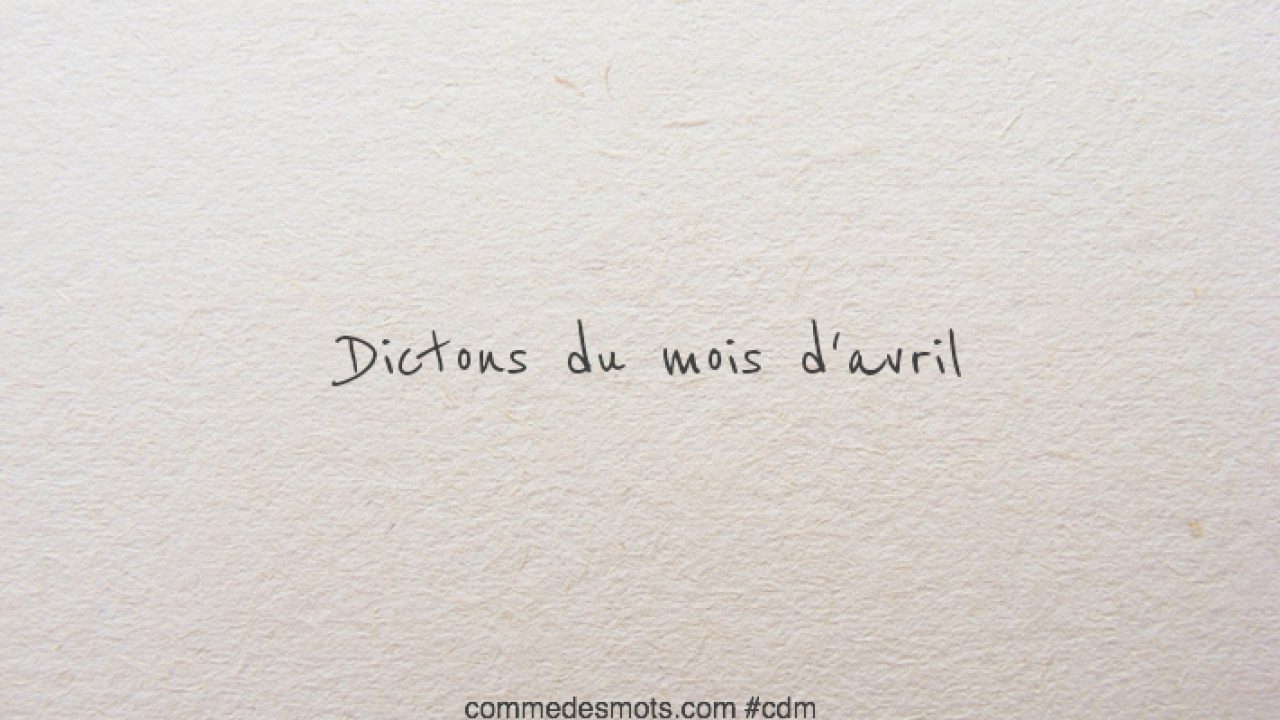 Dictons du mois d'avril
commedesmots.com #cdm